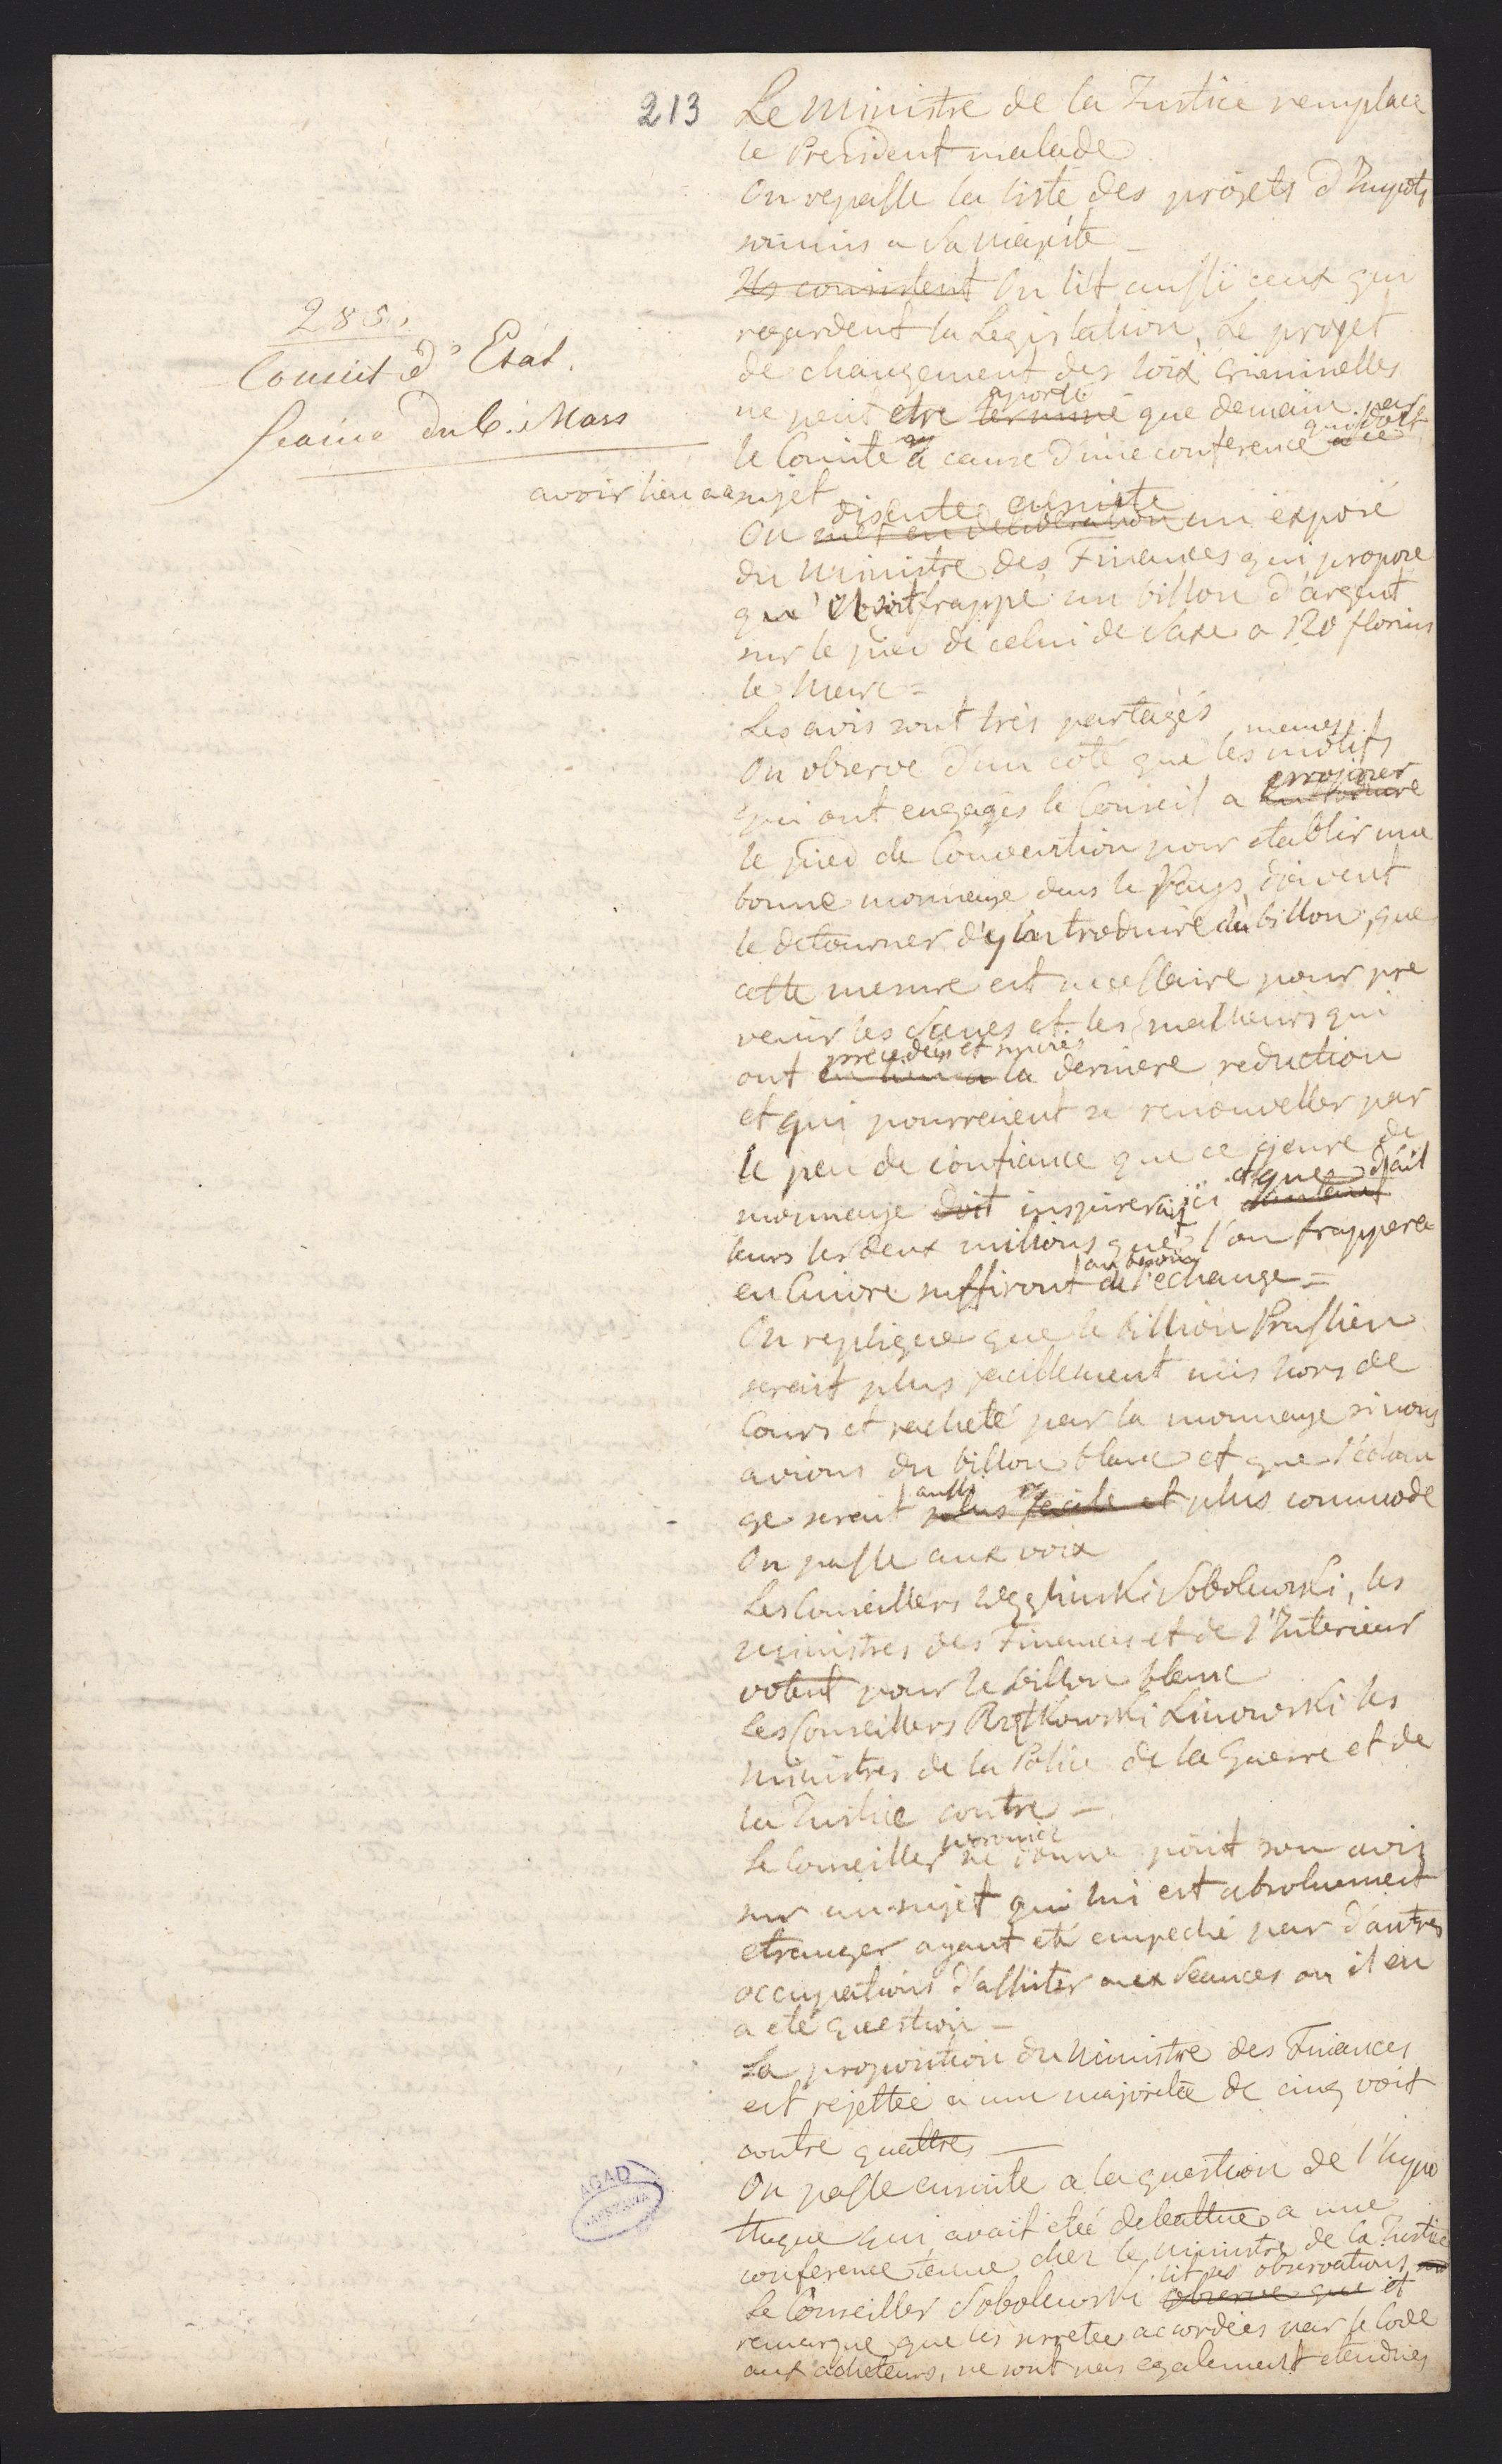 213
Le Ministre de la Justice remplace
le President malade
On repasse la liste des projets d'Impots
soumis a Sa Majesté
Ils consistent On lit aussi ceux qui
regardent la Legislation, Le projet
de changement des loix Criminelles
aporté
ne peut etre terminé que demain par
qui doit
le Comité a cause d'une conference
avoir lieu a ce sujet
285.
Conseil d'Etat.
Seance du 6. Mars
discute ensuite
On met en deliberation un exposé
du Ministre des Finances qui propose
qu'il soit frappé un billon d'argent
sur le pied de celui de Saxe a 120 florins
le Marc =
Les avis sont très partagés
memes
On observe d'un coté que les motifs
qui ont engagés le Conseil a introduire
le pied de Convention pour etablir une
bonne monnaye dans le Pays, doivent
le detourner d'y introduire du billon, que
cette mesure est necessaire pour pre
venir les et les malheurs qui
precedés et suivis
ont eu lieu a la derniere reduction
et qui pourraient se renouveller par
le peu de confiance que ce genre de
et que d'ail
monnaye doit inspirerait ici
leurs les deux millions que l'on frappera
au besoin
en Cuivre suffiront de l'echange =
On replique que le billion Prussien
serait plus facillement mis hors de
Cours et racheté par la monnaye si nous
avions du billon blanc et que l'échan
aussi
ge serait plus facile et plus commode
On passe aux voix
Les Conseillers Węgliński Sobolewski, les
Ministres des Finances et de l'Interieur
votent pour le billon blanc
les Conseillers Linowski les
Ministres de la Police de la Guerre et de
la Justice contre –
Le Conseiller ne donne point son avis
sur un sujet qui lui est absolument
etranger ayant eté empeché par d'autres
occupations d'assister aux Seances ou il en
a eté question –
La proposition du Ministre des Finances
est rejettée a une majorité de cinq voix
contre quattre –
On passe ensuite a la question de l'hypo
theque qui avait eteé debattue a une
conference tenue chez le Ministre de la Justice
lit ses observations
Le Conseiller Sobolewski observe que et
remarque que les surretes accordées par le Code
aux acheteurs, ne sont pas egalement etendues
AGAD
WARSZAWA